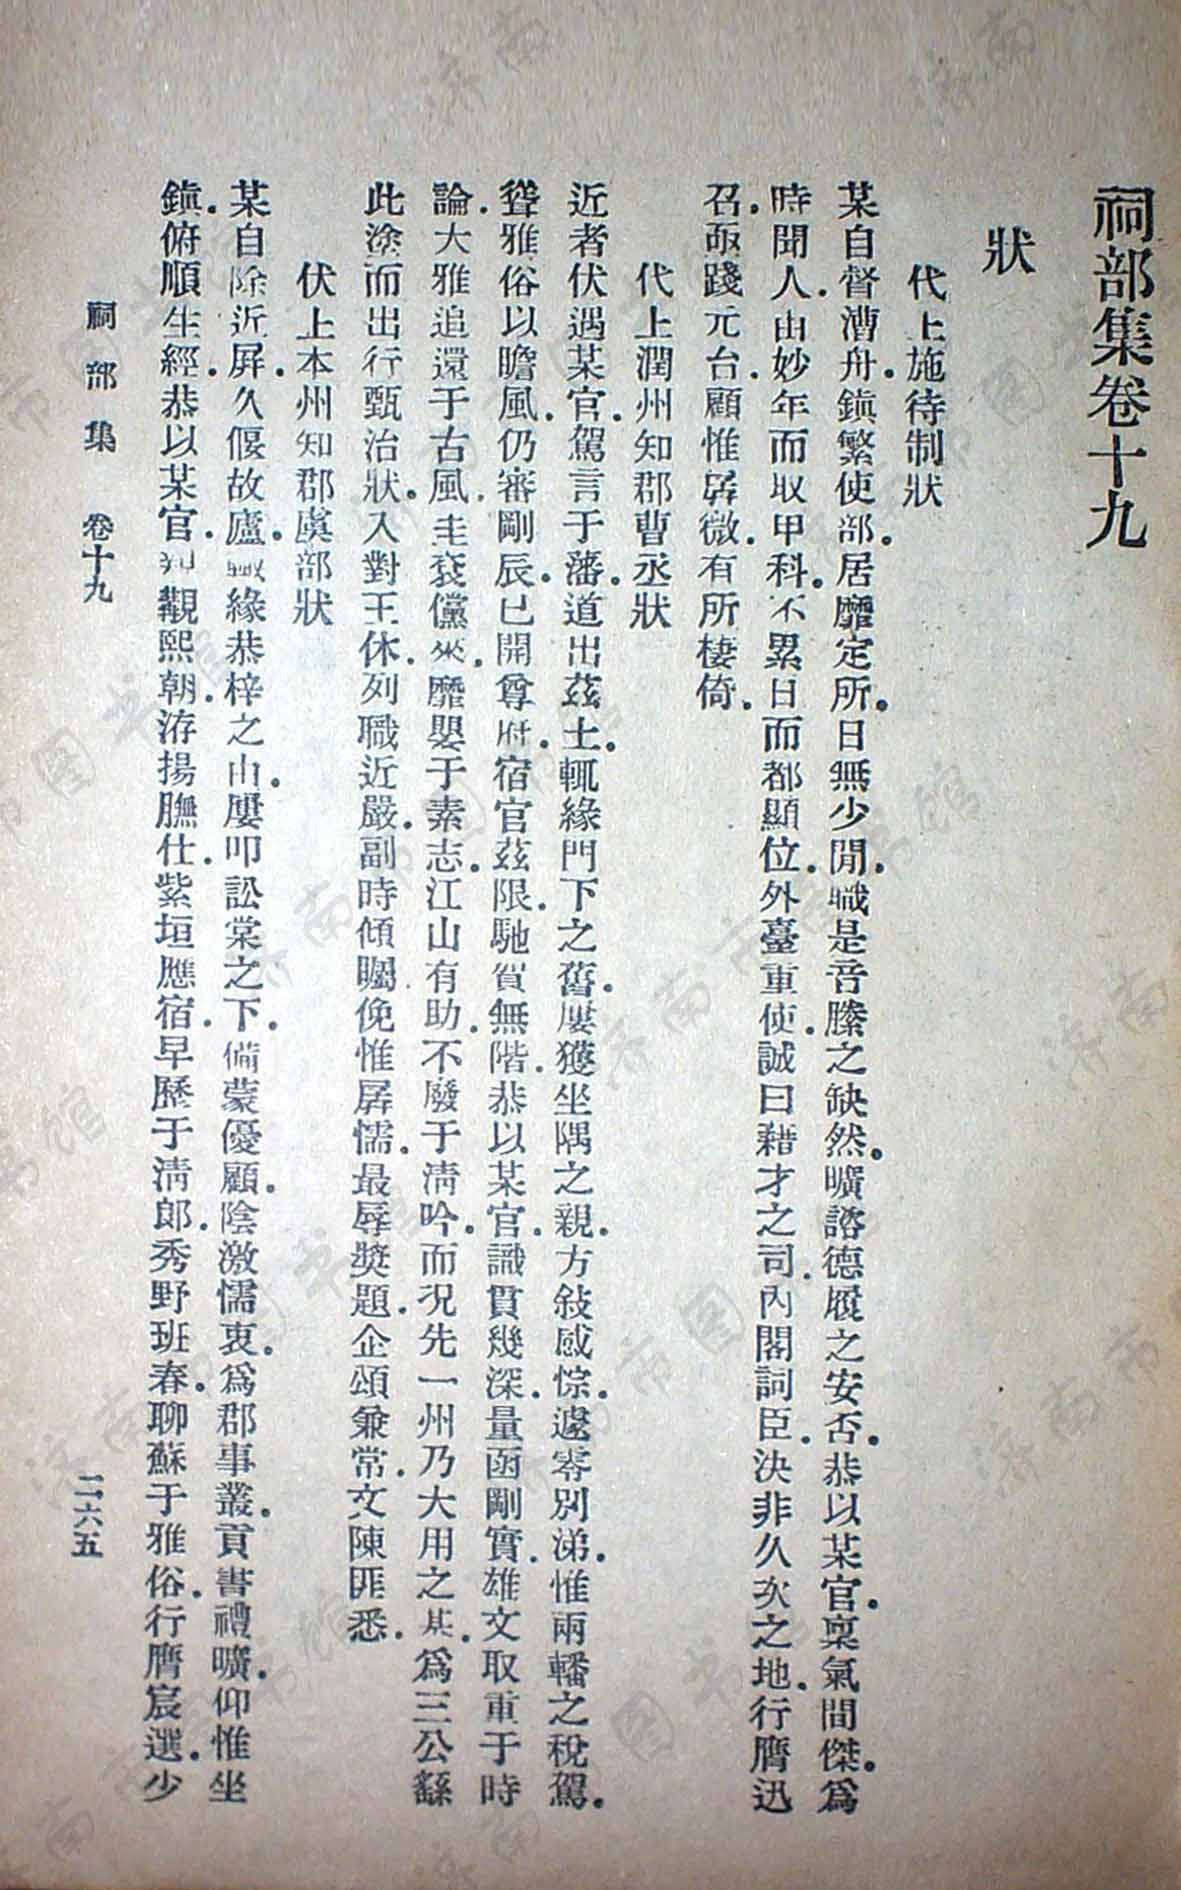 祠部集卷十九
狀
代上施待制狀
某自督漕舟．鎭繁使部．居靡定所．日無少閒．職是音縢之缺然．曠諮德履之安否．恭以某官．稟氣間傑．爲
時聞人．由妙年而取甲科．不累日而都顯位．外臺重使．誠曰藉才之司．內閣詞臣．決非久次之地．行膺迅
召．亟踐元台．顧惟孱微．有所棲倚．
代上潤州知郡曹丞狀
近者伏遇某官．駕言于藩．道出茲土．輒緣門下之舊．屢獲坐隅之親．方敍感悰．遽零別涕．惟兩轓之稅駕．
聳雅俗以瞻風．仍審剛辰．已開尊府．宿官茲限．馳賀無階．恭以某官．識貫幾深．量函剛實．雄文取重于時
論．大雅追還于古風．圭袞儻來．靡嬰于素志．江山有助．不廢于淸吟．而況先一州乃大用之基．爲三公繇
此塗而出．行甄治狀．入對王休．列職近嚴．副時傾矚．俛惟孱懦．最辱奬題．企頌兼常．文陳匪悉．
伏上本州知郡虞部狀
某自除近屏．久偃故廬．輒緣恭梓之由．屢叩訟棠之下．備蒙優顧．陰激懦衷．爲郡事叢．貢書禮曠．仰惟坐
鎭．俯順生經．恭以某官．觀熙朝．洊揚膴仕．紫垣應宿．早歷于淸郞．秀野班春．聊蘇于雅俗．行膺宸選．少
祠部集　卷十九
二六五
濟南市图书馆